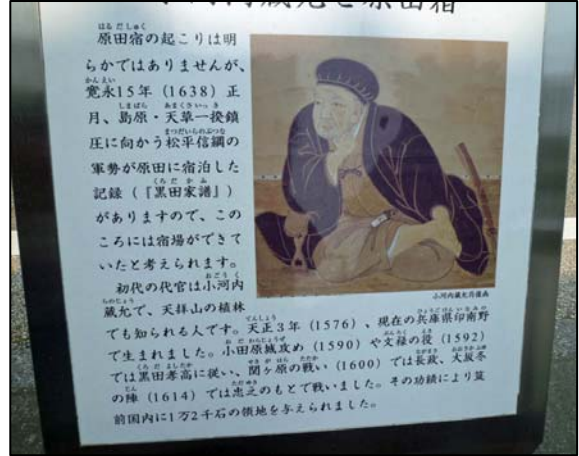 原田宿の起こりは明
らかではありませんが、
寛永15年（1638）正
月、島原・天草一揆鎮
圧に向かう松平信綱の
軍勢が原田に宿泊した
記録（『黒田家譜』）
がありますので、この
ころには宿場ができて
いたと考えられます。
初代の代官は小河内
蔵允で、天拝山の植林
でも知られる人です。天正3年（1576）、現在の兵庫県印南野
で生まれました。小田原城攻め（1590）や文禄の役（1592）
では黒田孝高に従い、関ヶ原の戦い（1600）では長政、大坂冬
の陣（1614）では忠之のもとで戦いました。その功績により筑
前国内に1万2千石の領地を与えられました。